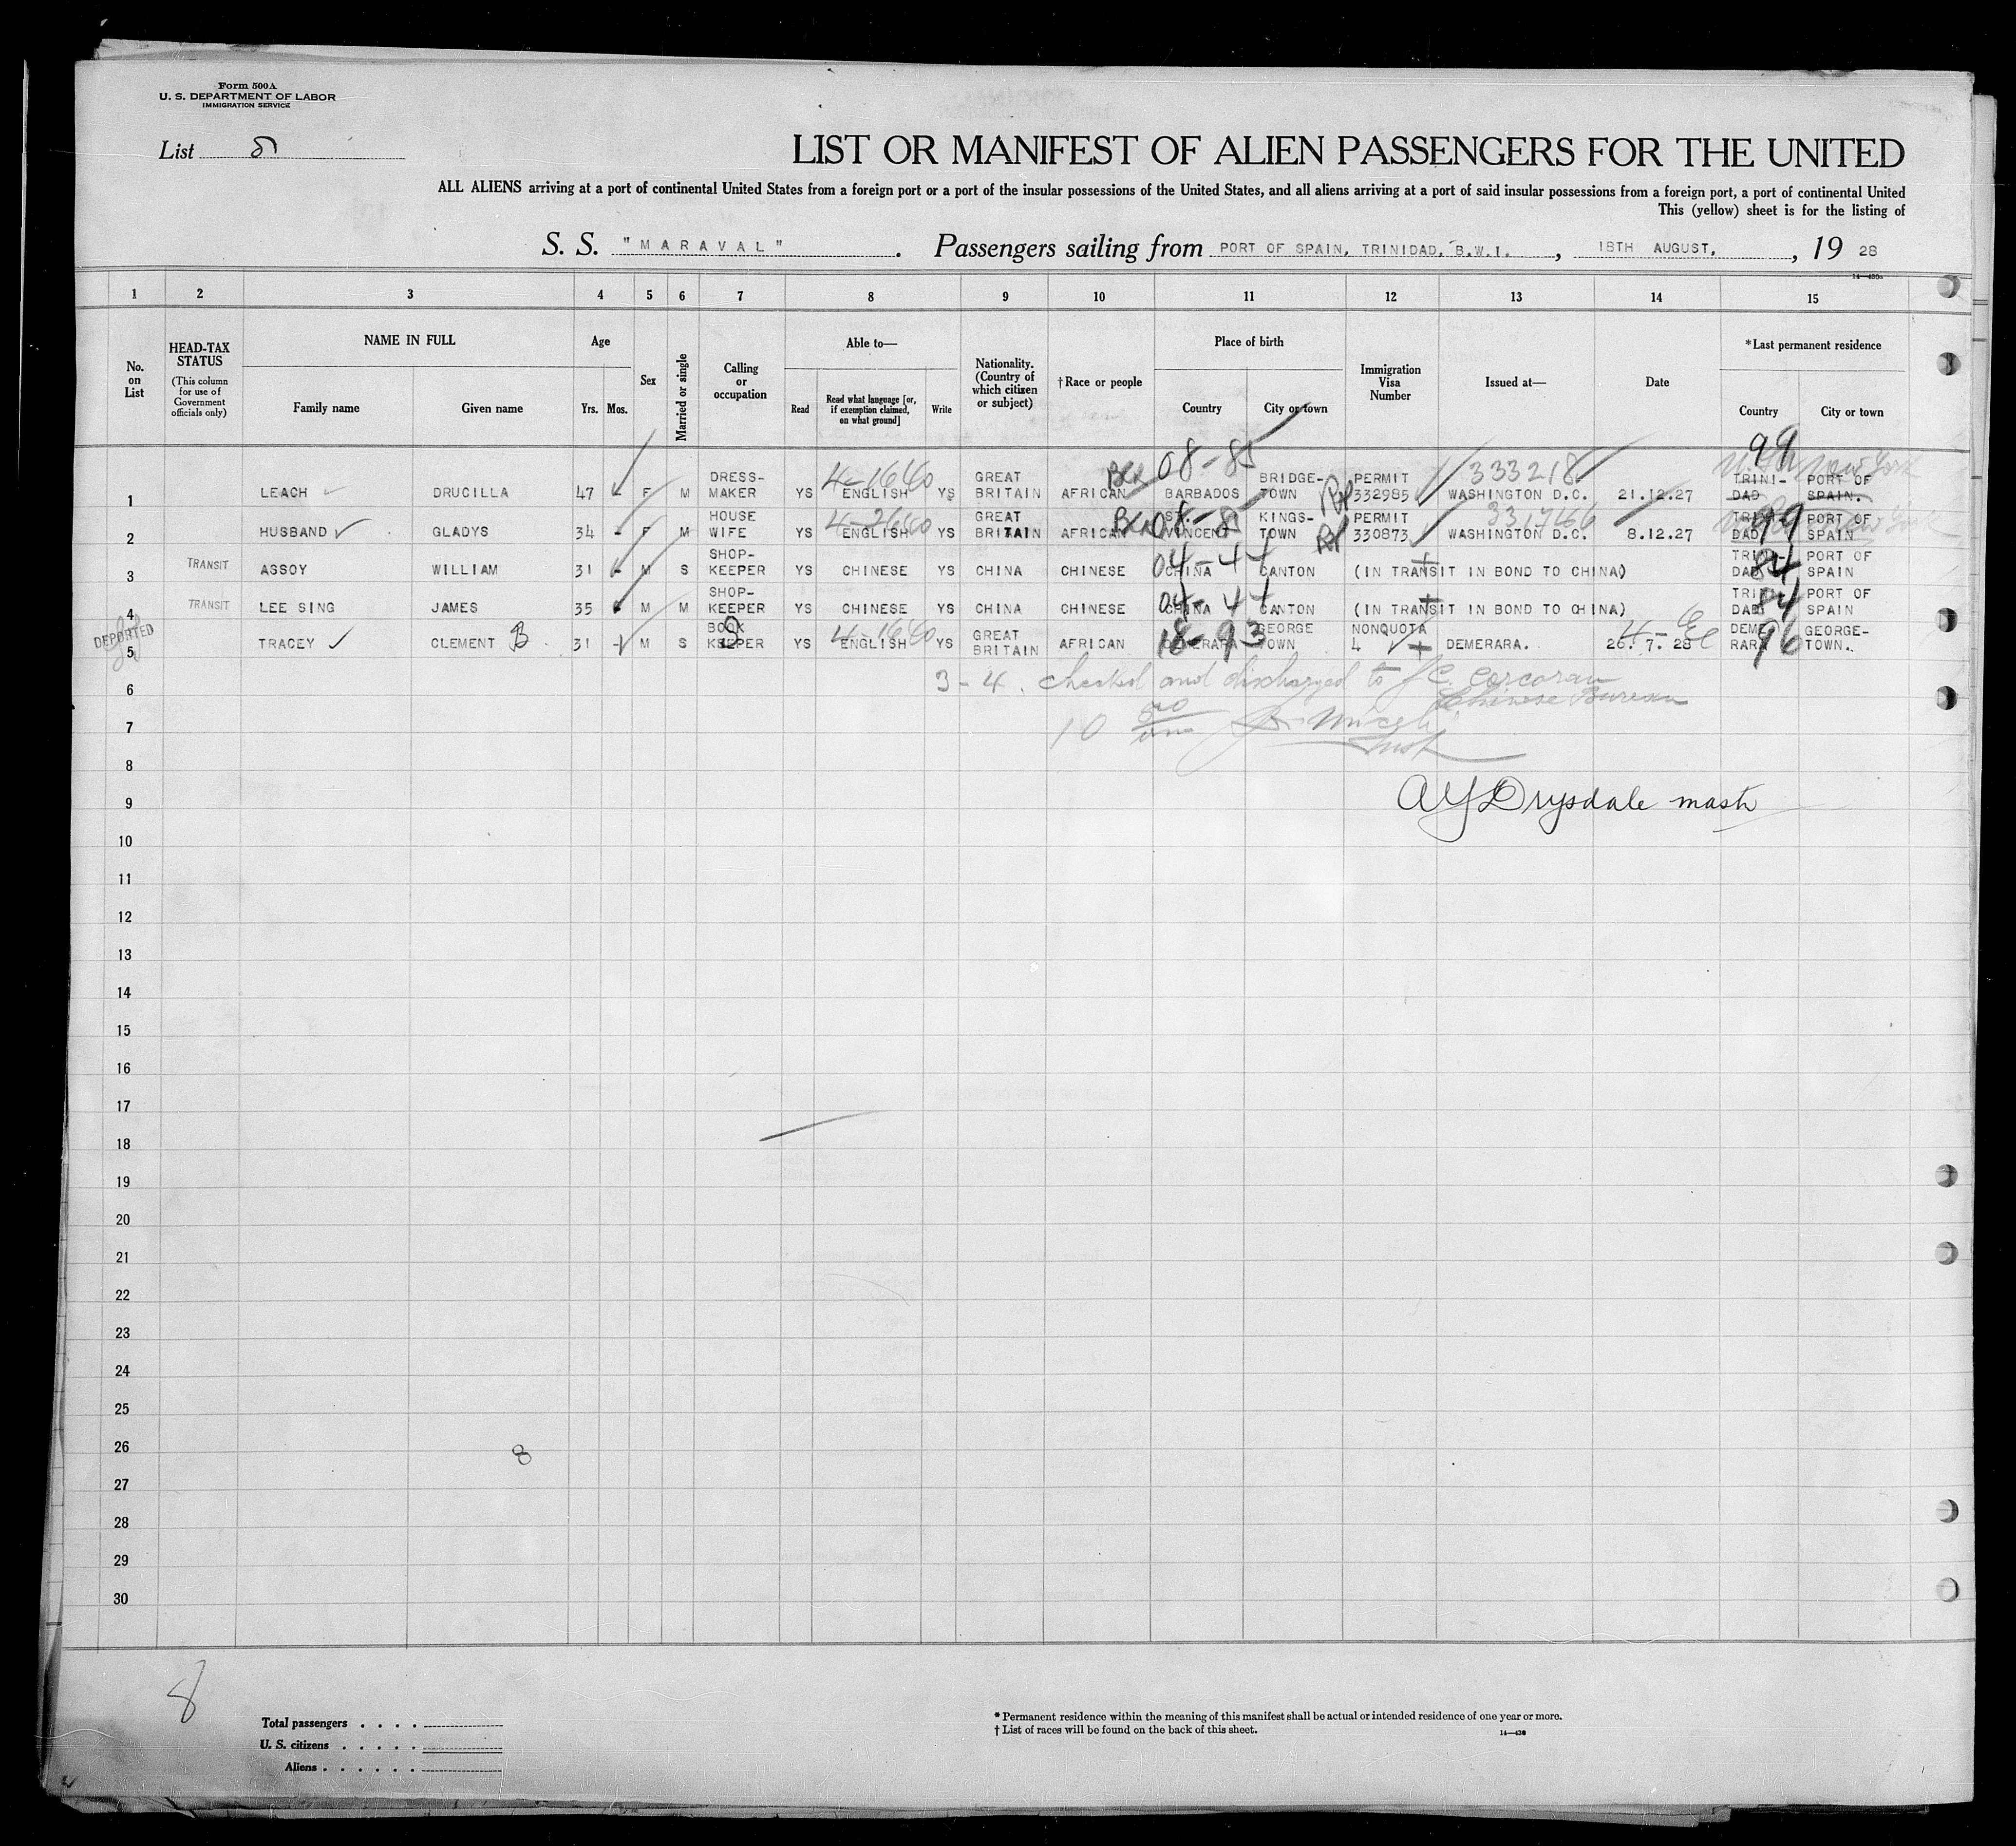 Form 500A
U. S. DEPARTMENT OF LABOR
IMMIGRATION SERVICE
List 8
LIST OR MANIFEST OF ALIEN PASSENGERS FOR THE UNITED
ALL ALIENS arriving at a port of continental United States from a foreign port or a port of the insular possessions of the United States, and all aliens arriving at a port of said insular possessions from a foreign port, a port of continental United
This (yellow) sheet is for the listing of
S. S. "MARAVAL". Passengers sailing from PORT OF SPAIN, TRINIDAD, B.W.I., 18TH AUGUST, 1928
1 2 3 4 5 6 7 8 9 10 11 12 13 14 15
No. on List
HEAD-TAX STATUS (This column for use of Government officials only)
NAME IN FULL
Family name Given name
Age
Yrs. Mos.
Sex
Married or single
Calling or occupation
Able to—
Read Read what language [or, if exemption claimed, on what ground] Write
Nationality. (Country of which citizen or subject)
†Race or people
Place of birth
Country City or town
Immigration Visa Number
Issued at—
Date
*Last permanent residence
Country City or town
08-85 99
4-1660 Blk RP 333218 New York
1 LEACH DRUCILLA 47 - F M DRESS-MAKER YS ENGLISH YS GREAT BRITAIN AFRICAN BARBADOS BRIDGE-TOWN PERMIT 332985 WASHINGTON D.C. 21.12.27 TRINI-DAD PORT OF SPAIN.
2 HUSBAND GLADYS 34 - F M HOUSE WIFE YS ENGLISH YS GREAT BRITAIN AFRICAN ST. VINCENT KINGS-TOWN PERMIT 330873 WASHINGTON D.C. 8.12.27 TRINI-DAD 99 PORT OF SPAIN
3 TRANSIT ASSOY WILLIAM 31 - M S SHOP-KEEPER YS CHINESE YS CHINA CHINESE 04-44 CHINA CANTON (IN TRANSIT IN BOND TO CHINA) TRINI-DAD 84 PORT OF SPAIN
4 TRANSIT LEE SING JAMES 35 - M M SHOP-KEEPER YS CHINESE YS CHINA CHINESE 04-44 CHINA CANTON (IN TRANSIT IN BOND TO CHINA) TRINI-DAD 84 PORT OF SPAIN
5 DEPORTED TRACEY CLEMENT B 31 - M S BOOK KEEPER YS 4-1660 ENGLISH YS GREAT BRITAIN AFRICAN 18-93 DEMERARA GEORGE TOWN NONQUOTA 4 DEMERARA. 26.7.28 DEMERARA 96 GEORGE-TOWN.
6 3-4. checked and discharged to J C. Corcoran
Chinese Bureau
7
8
9 A Y Drysdale mast
10
11
12
13
14
15
16
17
18
19
20
21
22
23
24
25
26 8
27
28
29
30
8
Total passengers . . . .
U. S. citizens . . . . .
Aliens . . . . . .
* Permanent residence within the meaning of this manifest shall be actual or intended residence of one year or more.
† List of races will be found on the back of this sheet.
14—430